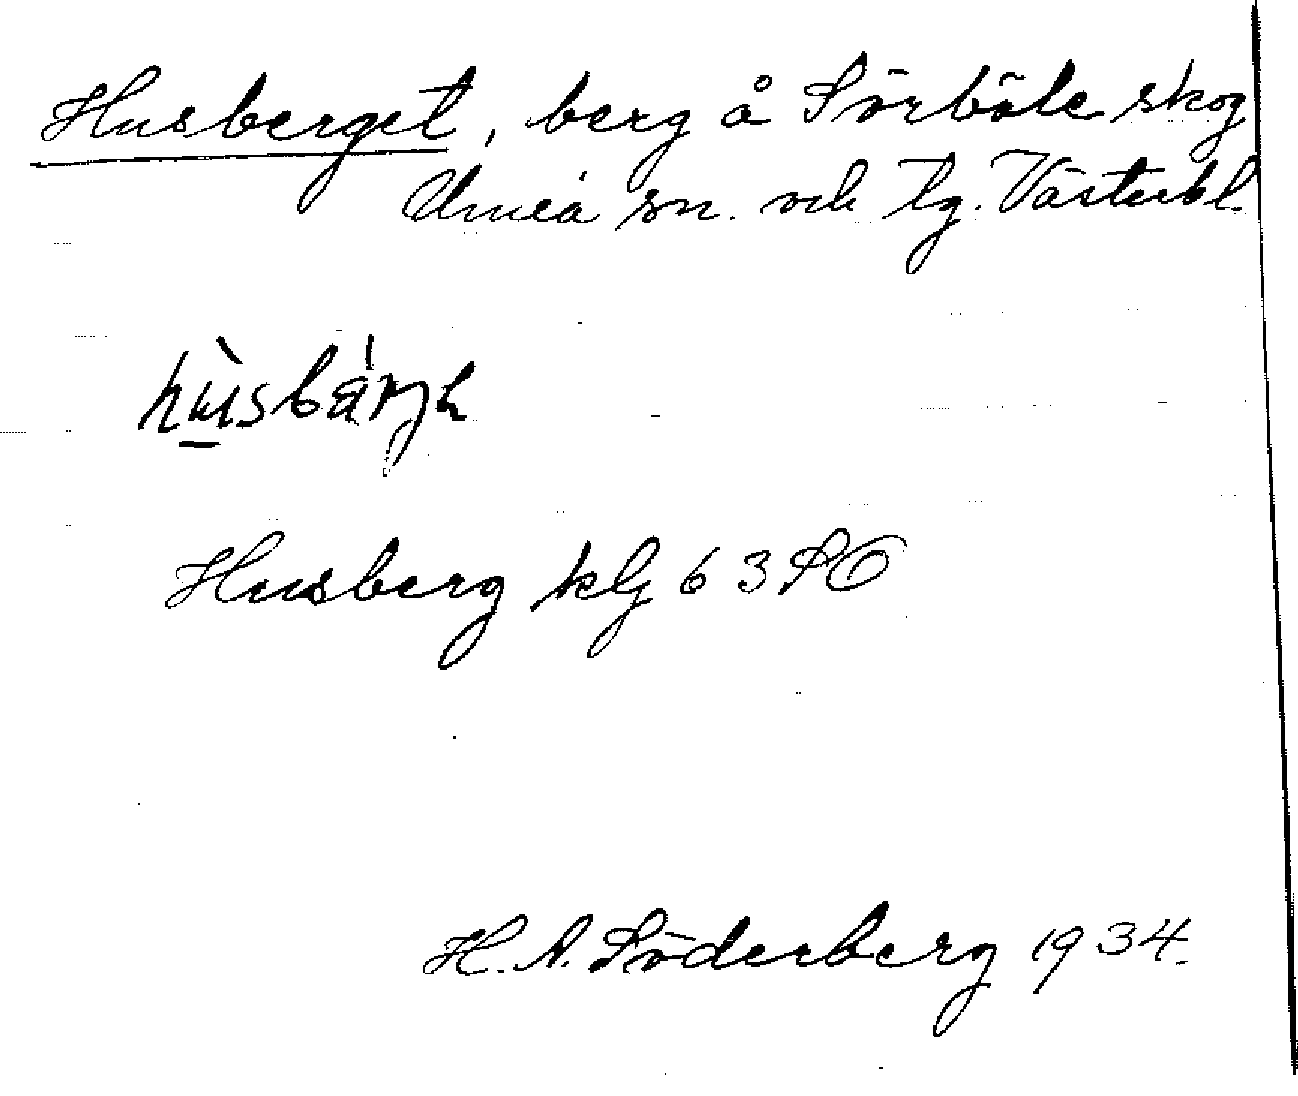 Husberget, berg å Sörböle skog
Umeå sn. och tg. Västerbl.
Husberg klj 63 SO
H. A. Söderberg 1934.